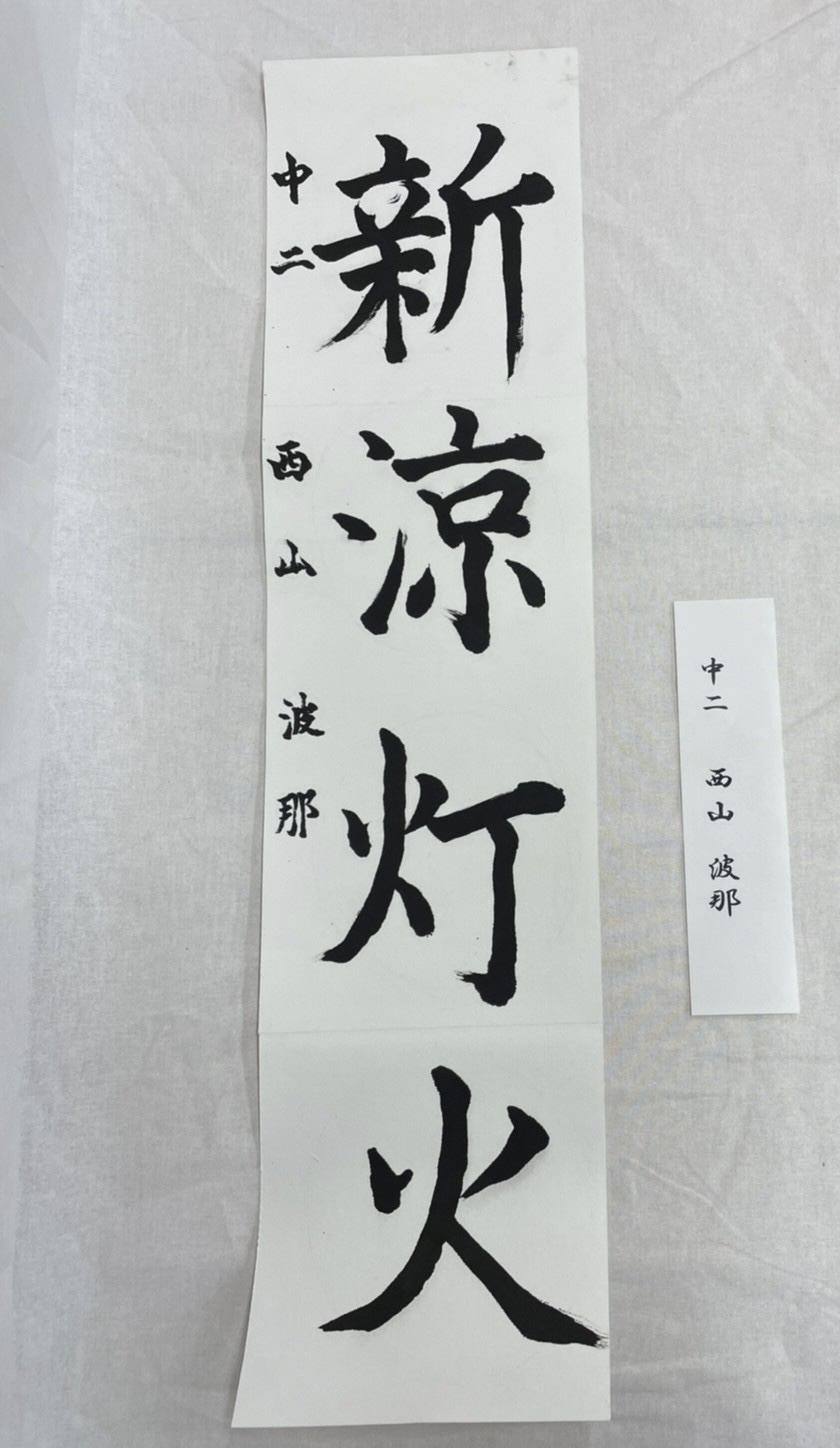 新涼灯火
中二 西山 波那
中二 西山 波那